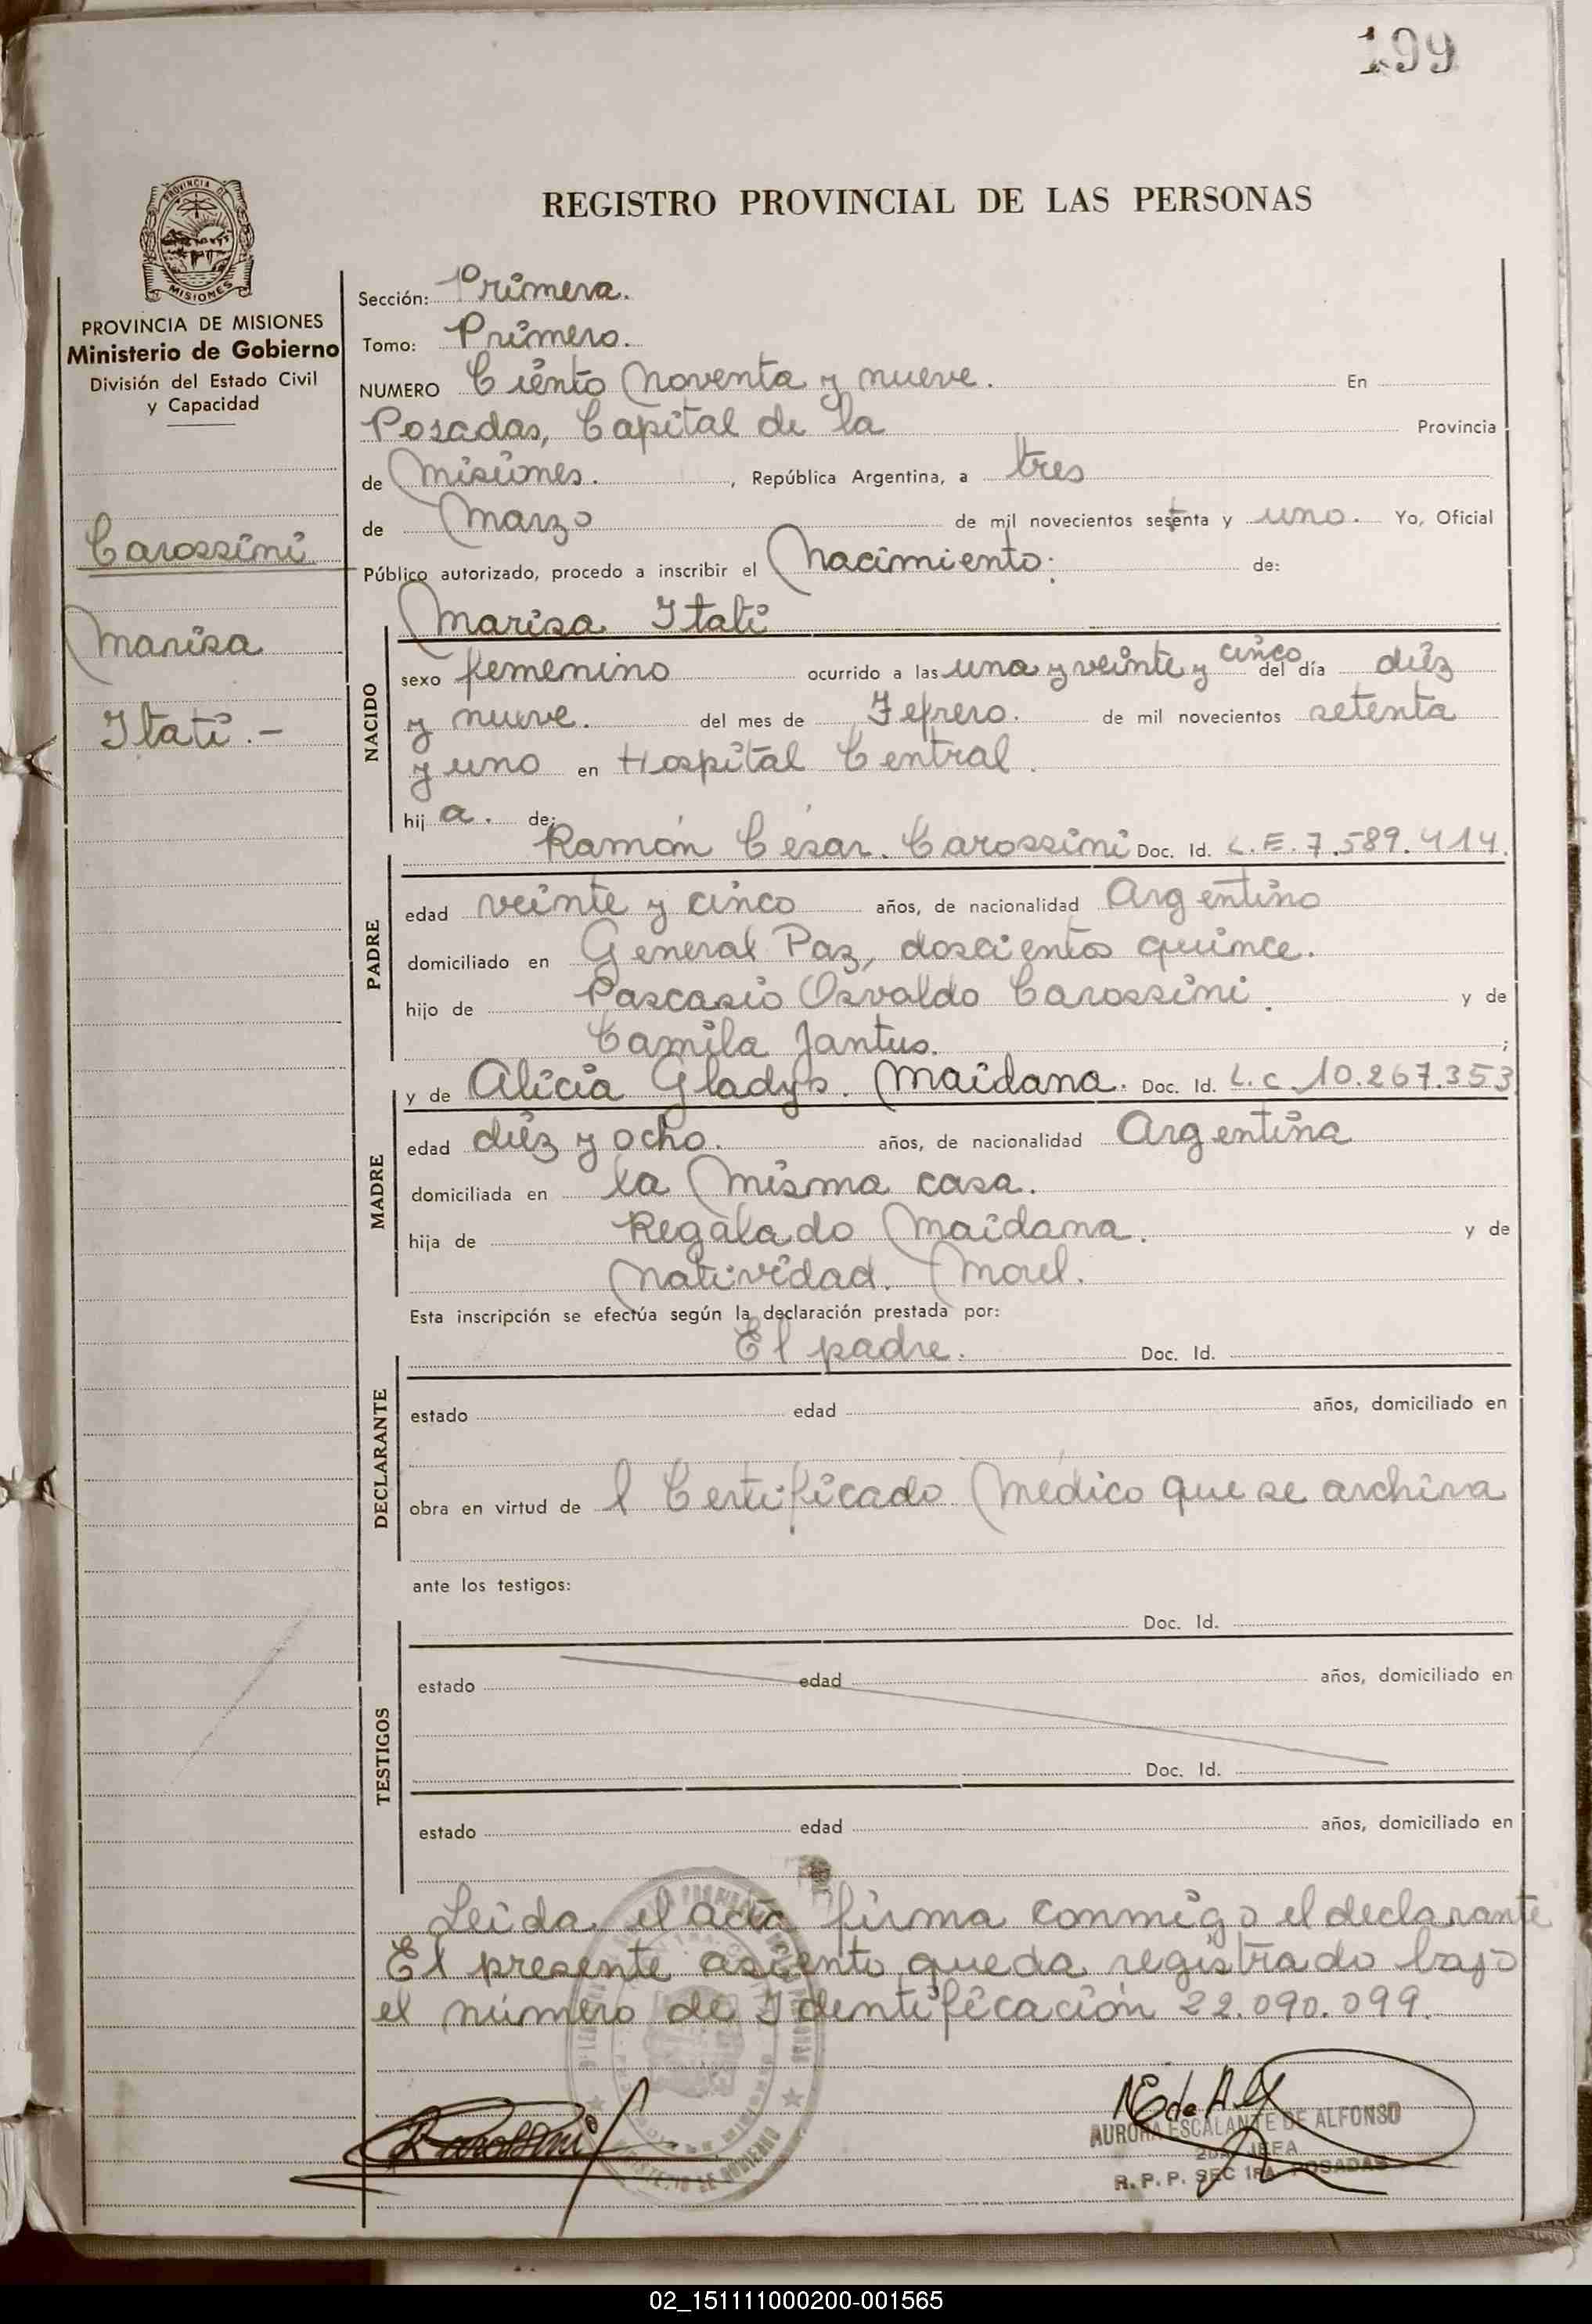 199
PROVINCIA DE
MISIONES
REGISTRO PROVINCIAL DE LAS PERSONAS
PROVINCIA DE MISIONES
Ministerio de Gobierno
División del Estado Civil
y Capacidad
Carossini
Marisa
Itatí.-
Sección: Primera.
Tomo: Primero.
NUMERO Ciento Noventa y nueve. En
Posadas, Capital de la Provincia
de Misiones. , República Argentina, a tres
de Marzo de mil novecientos setenta y uno. Yo, Oficial
Público autorizado, procedo a inscribir el Nacimiento: de:
Marisa Itatí
NACIDO
sexo femenino ocurrido a las una y veinte y cinco del día diéz
y nueve. del mes de Febrero. de mil novecientos setenta
y uno en Hospital Central.
hij a. de:
Ramón César. Carossini Doc. Id. L.E. 7.589.414.
PADRE
edad veinte y cinco años, de nacionalidad Argentino
domiciliado en General Paz, doscientos quince.
hijo de Pascasio Osvaldo Carossini. y de
Camila Jantus. ;
y de Alicia Gladys. Maidana. Doc. Id. L.C. 10.267.353
MADRE
edad diéz y ocho. años, de nacionalidad Argentina
domiciliada en la misma casa.
hija de Regalado Maidana. y de
Natividad. Morel.
Esta inscripción se efectúa según la declaración prestada por:
El padre. Doc. Id.
DECLARANTE
estado edad años, domiciliado en
obra en virtud de l Certificado Médico que se archiva
ante los testigos:
Doc. Id.
TESTIGOS
estado edad años, domiciliado en
Doc. Id.
estado edad años, domiciliado en
Leida el acta firma conmigo el declarante
El presente asiento queda registrado bajo
el número de Identificación 22.090.099.
Carossini
AURORA ESCALANTE DE ALFONSO
2DA. JEFA
R. P. P. SEC 1RA. POSADAS
02_151111000200-001565